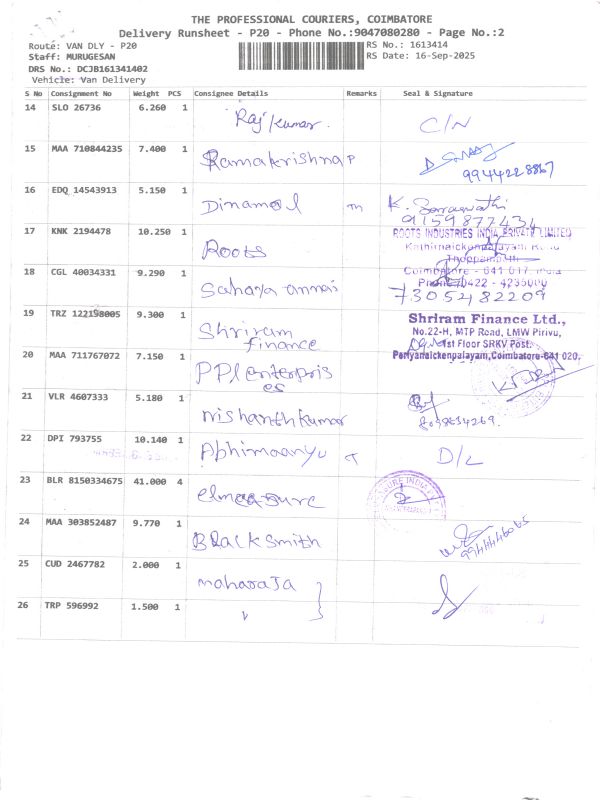 THE PROFESSIONAL COURIERS, COIMBATORE
Delivery Runsheet - P20 - Phone No.:9047080280 - Page No.:2
Route: VAN DLY - P20
RS No.: 1613414
Staff: MURUGESAN
RS Date: 16-Sep-2025
DRS No.: DCJB161341402
Vehicle: Van Delivery
S No Consignment No Weight PCS Consignee Details Remarks Seal & Signature
14 SLO 26736 6.260 1 Rajkumar. C/N
15 MAA 710844235 7.400 1 Ramakrishna P
9944228867
16 EDQ 14543913 5.150 1 Dinamal K. Saraswathi
9159877434
17 KNK 2194478 10.250 1 Roots ROOTS INDUSTRIES INDIA PRIVATE LIMITED
Kathirnaickenpalayam Road
Thoppampatti
18 CGL 40034331 9.290 1 Sahaya annai Coimbatore - 641 017 India
Phone: 0422 - 4235000
7305482209
19 TRZ 122198005 9.300 1 Shriram finance Shriram Finance Ltd.,
No.22-H, MTP Road, LMW Pirivu,
1st Floor SRKV Post.
20 MAA 711767072 7.150 1 PPl enterprises Periyanaickenpalayam,Coimbatore-641 020.
21 VLR 4607333 5.180 1 nishanthkumar
22 DPI 793755 10.140 1 Abhimaanyu D/L
23 BLR 8150334675 41.000 4 elmeasure
24 MAA 303852487 9.770 1 BlackSmith
9944446065
25 CUD 2467782 2.000 1 maharaja
26 TRP 596992 1.500 1